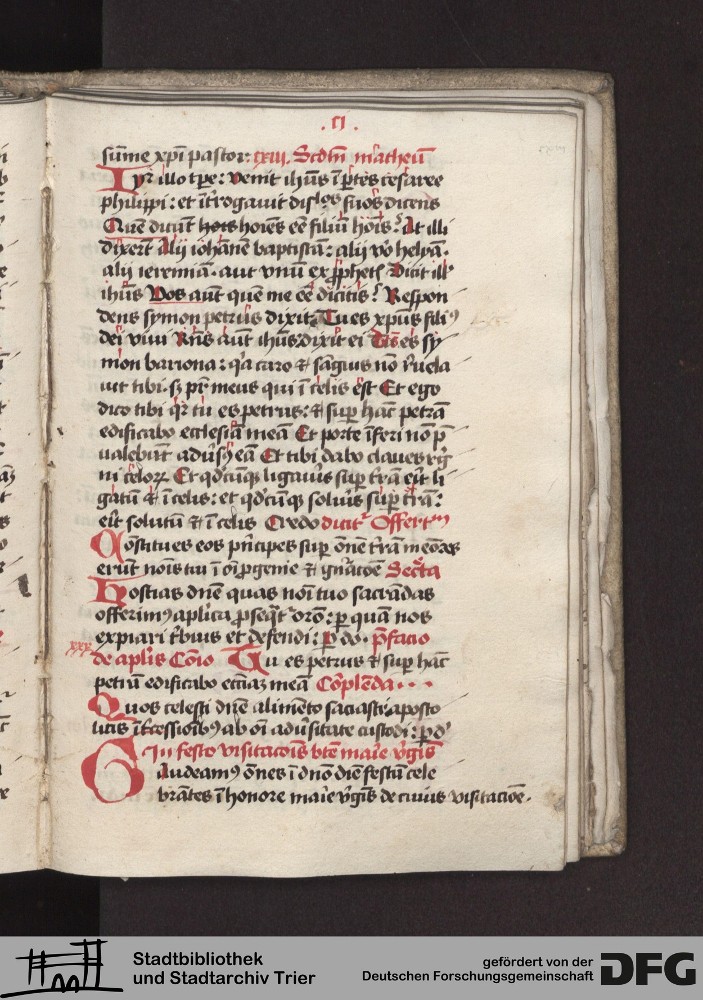 .CI.
sūme xpī pastor: cxiii. Scdm̄ matheū
IN illo tp̄e: Venit ihūs ī ptēs cesaree
philippi: et īt'rogauit disˡos suos dicens
Quē dicūt hoīes eē filiū hoīs? At illi
dixerūt Alij iohānē baptistā: alij v̄o helyā.
alij ieremiā. aut vnū ex ꝓphetꝭ Dicit illˢ
ihūs Vos aūt quē me eē dicitis? Respon
dens symon petrus dixit Tu es xp̄us filiꝰ
dei viui Rn̄s aūt ihūs dixit ei Btūs es sy
mon bariona: q̇a caro & sāguis nō reuela
uit tibi. sꝫ pr̄ meus qui ī celis ēst Et ego
dico tibi q̇r tu es petrus: & suꝑ hāc petrā
edificabo ecclesiā meā Et porte īferi nō p̄
ualebūt adūsꝰ eā Et tibi dabo claues reg
ni celoꝝ Et qd̄cūqꝫ ligauīs suꝑ t̄rā eīt li
gatū & ī celis: et qd̄cūqꝫ soluīs suꝑ t̄rā:
eīt solutū & ī celis Credo dicit' Offertᵐ
Cōstitues eos pncipes suꝑ ōnē t̄rā memores
erūt noīs tui ī oī ꝓgenie & gn̄acōe Secᵗa
Hostias dn̄e quas noī tuo sacrādas
offerimꝰ aplīca ꝓseqᵗ' orō: ꝑ quā nos
expiari t̄buis et defendi: ꝑ do. p̄facio
xxx
de aplīs Cōīo Tu es petrus & suꝑ hāc
petrā edificabo ecciaꝫ meā Cōplēda...
Quos celesti dn̄e alimēto saciasti aposto
licis īt̄cessioībꝰ ab oī adūsitate custodi: ꝑ dᵒ
In festo visitacōis btē mar̄ie v̄gīs
Gaudeamꝰ ōnes ī dn̄o diē festū cele
brātes ī honore mar̄ie v̄gīs de cuius visitacōe.
Stadtbibliothek
und Stadtarchiv Trier
gefördert von der
Deutschen Forschungsgemeinschaft
DFG